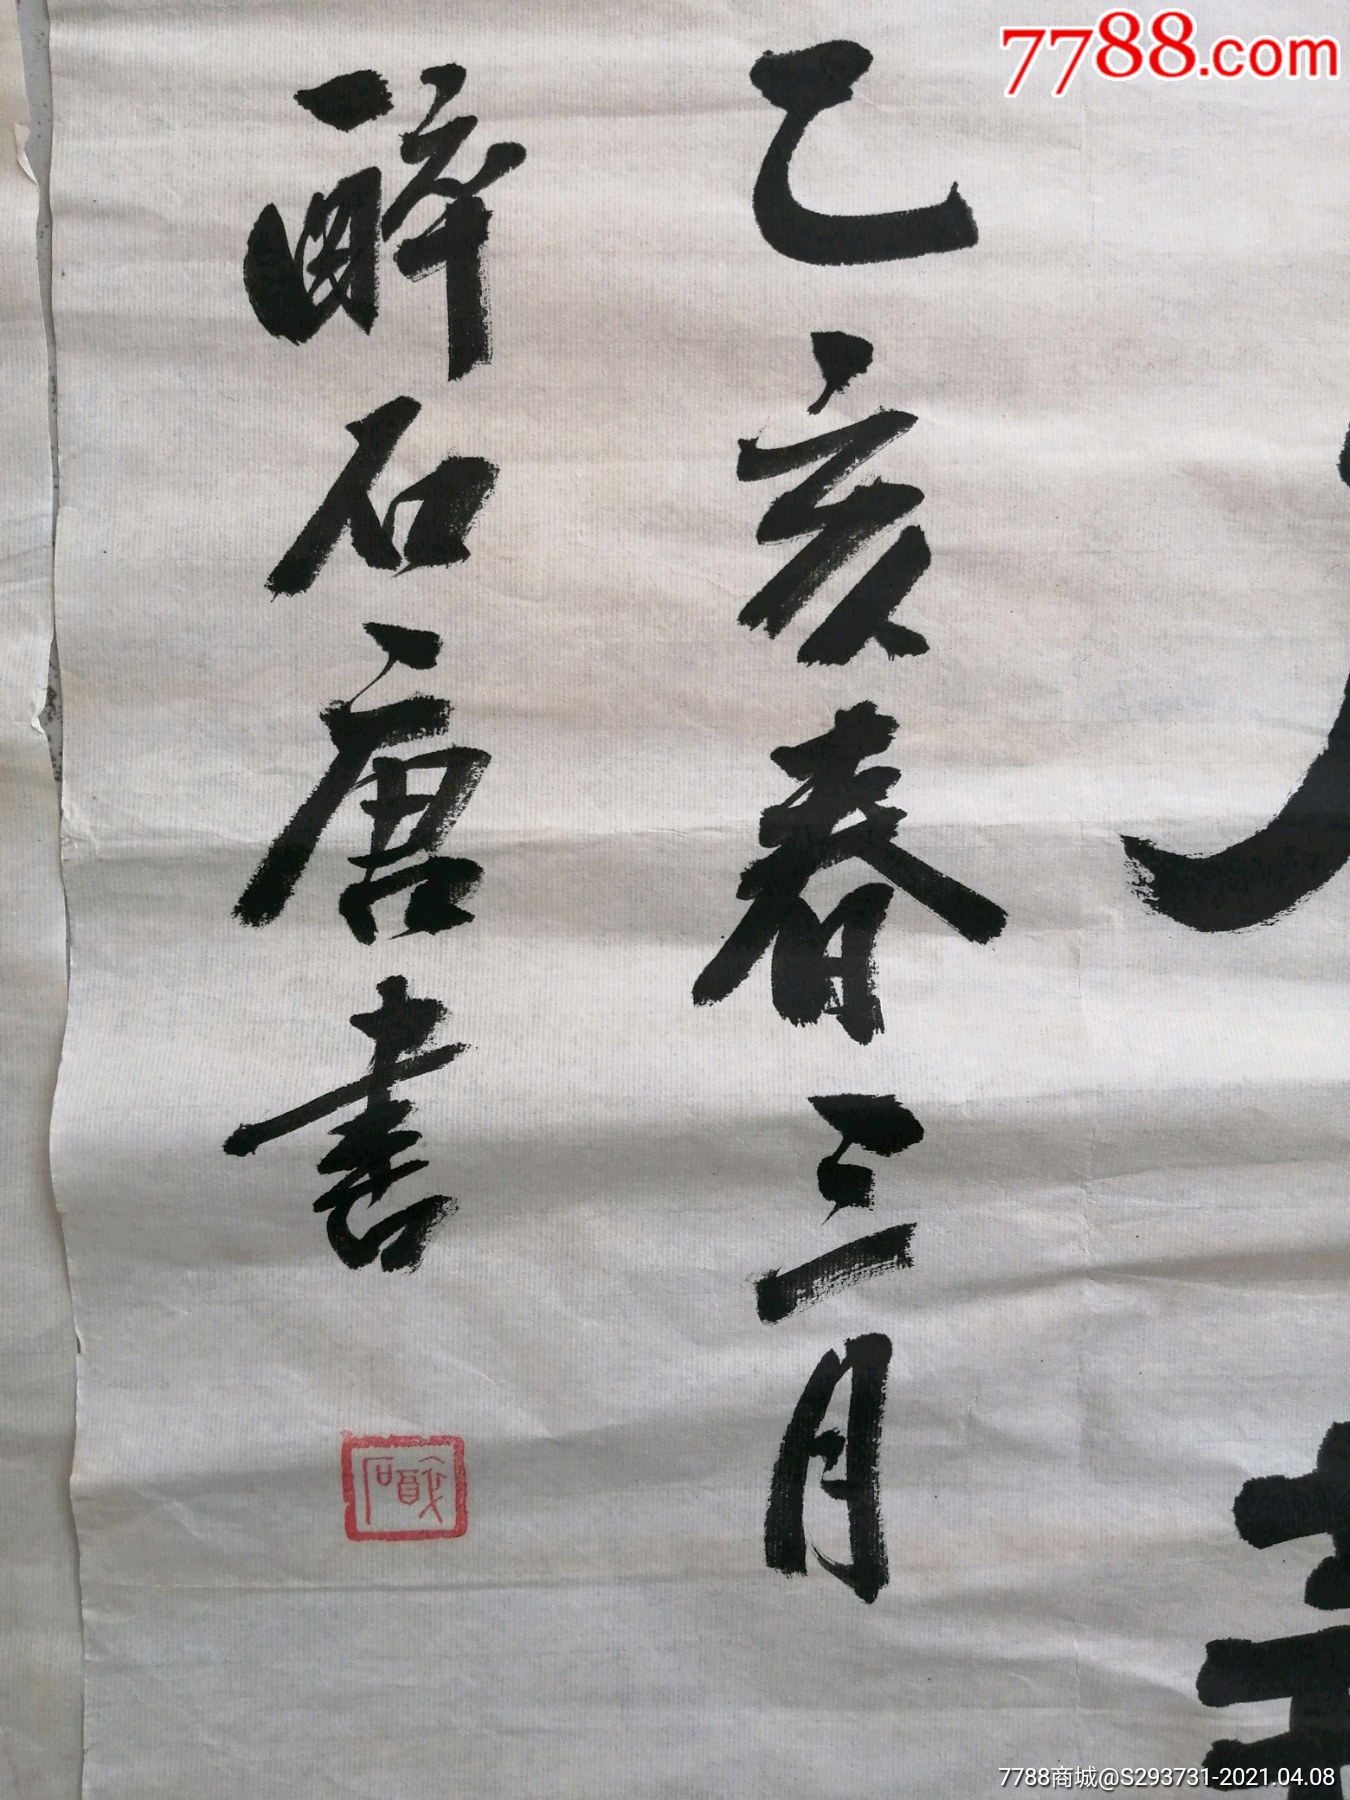 7788.com
乙亥春三月
醉石唐書
7788商城@S293731-2021.04.08